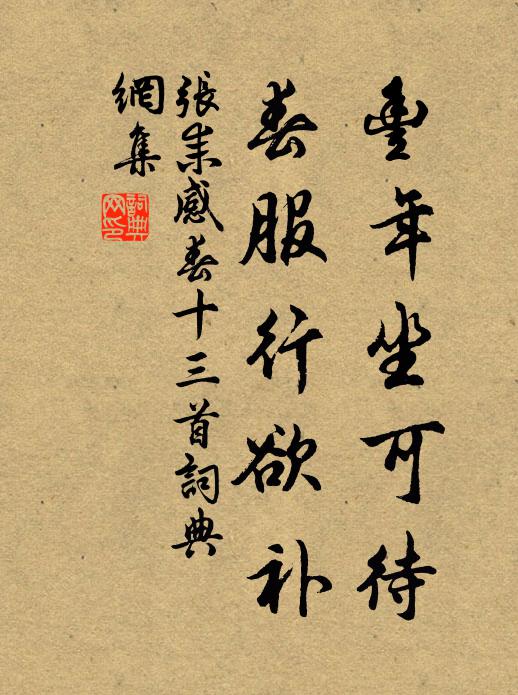 豊年坐可待
春服行欲补
張耒感春十三首詞典
網集
詞典
网印